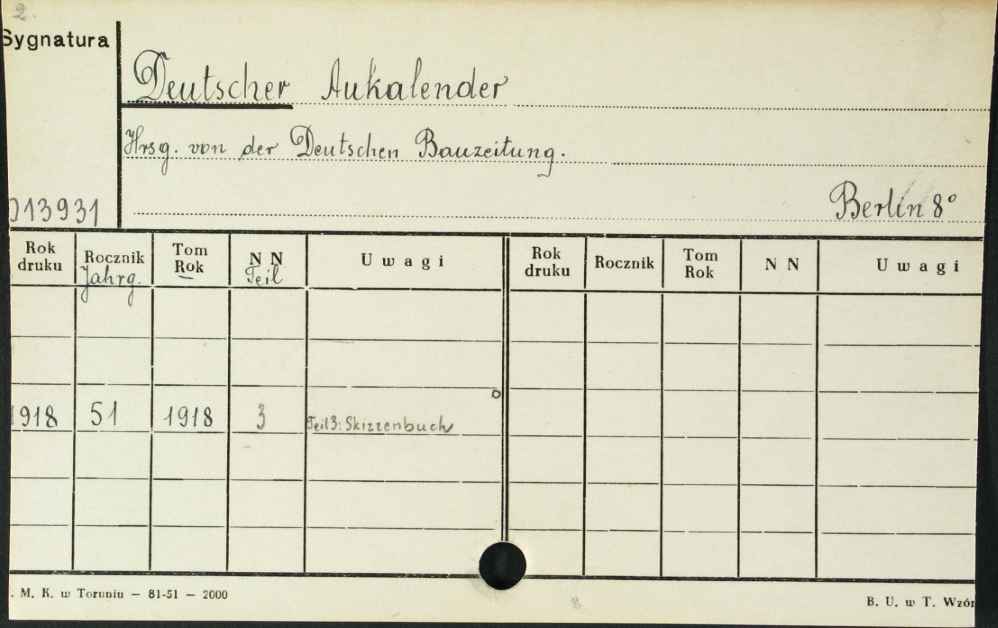 2.
Sygnatura
Deutscher Aukalender
Hrsg. von der Deutschen Bauzeitung.
013931
Berlin 8°
Rok druku Rocznik Jahrg. Tom Rok N N Teil Uwagi Rok druku Rocznik Tom Rok N N Uwagi
1918 51 1918 3 Teil 3: Skizzenbuch
. M. K. w Toruniu — 81-51 — 2000
8
B. U. w T. Wzór